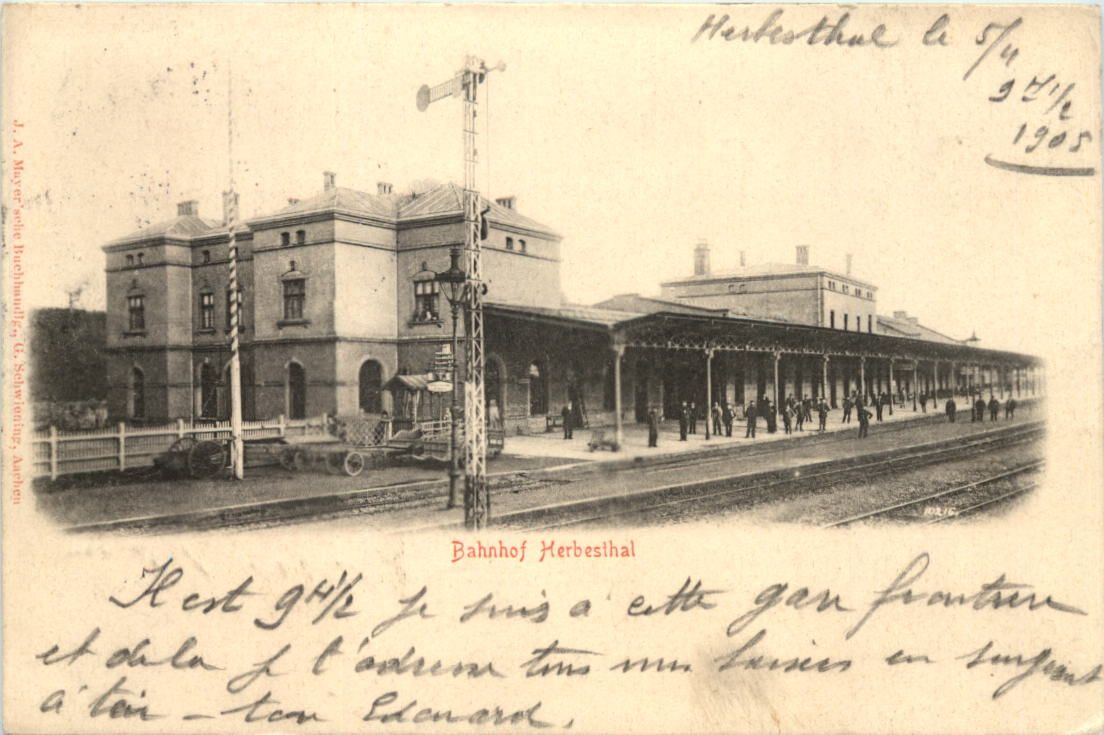 Herbesthal le 5/4
9 H 1/2
1905
J. A. Mayer'sche Buchhandlg., G. Schwiening, Aachen
10215
Bahnhof Herbesthal
Il est 9 H 1/2 je suis à cette gare frontière
et de la je t'adresse tous mes baisers en songeant
à toi – ton Edouard.